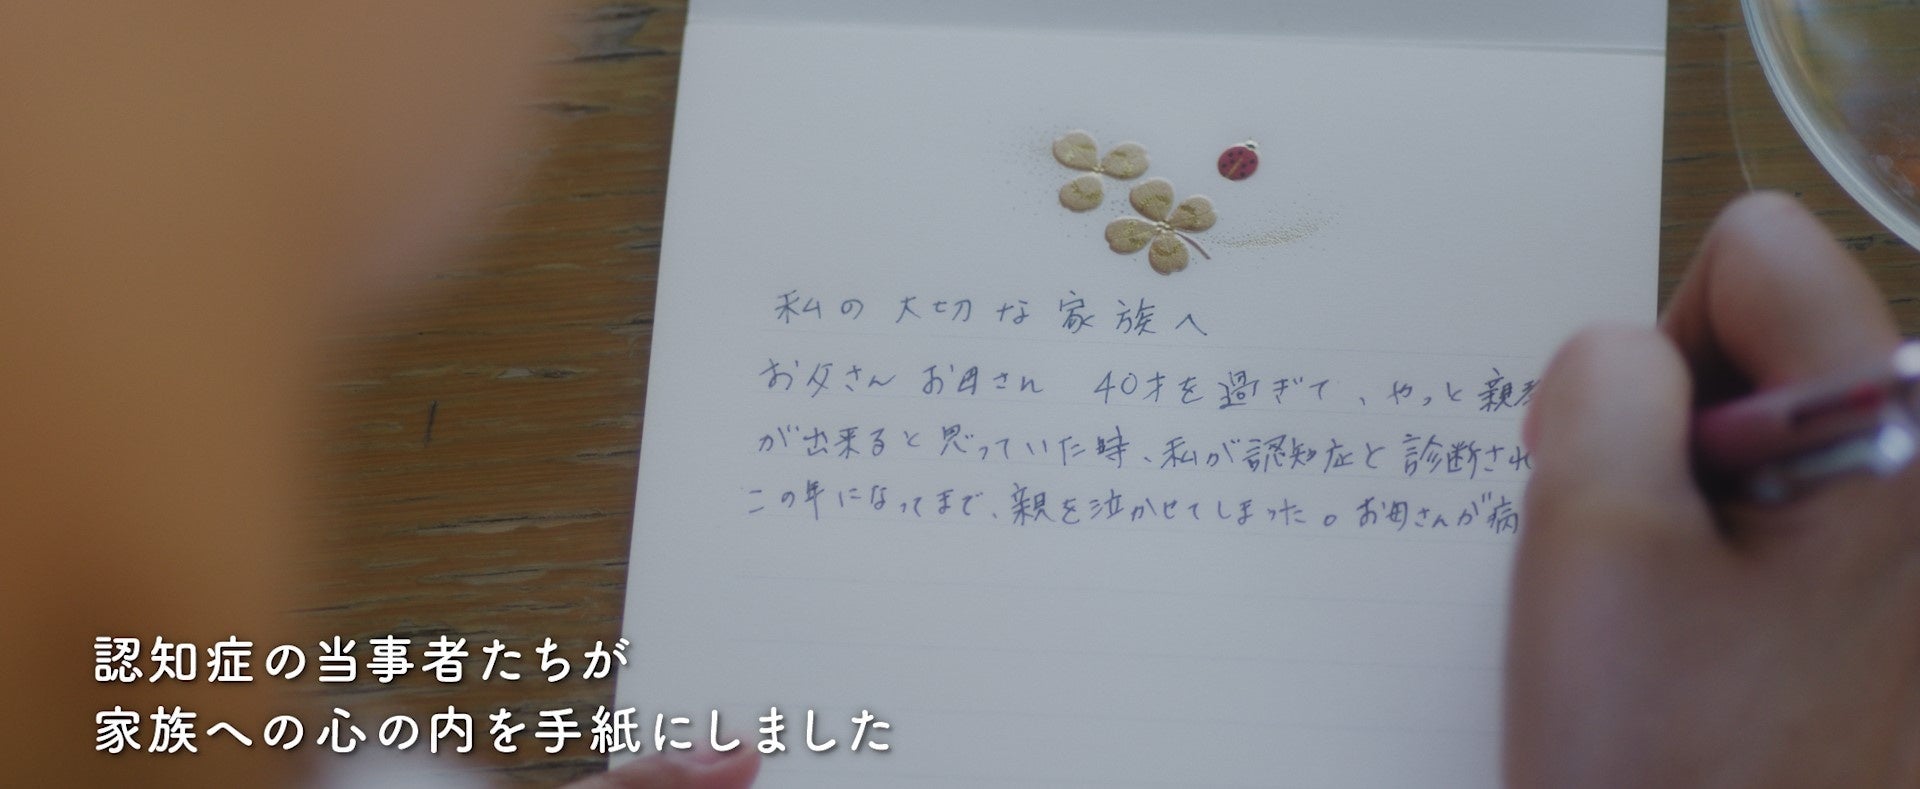 私の大切な家族へ
お父さん お母さん 40才を過ぎて、やっと親孝
が出来ると思っていた時、私が認知症と診断され
この年になってまで、親を泣かせてしまった。お母さんが病
認知症の当事者たちが
家族への心の内を手紙にしました